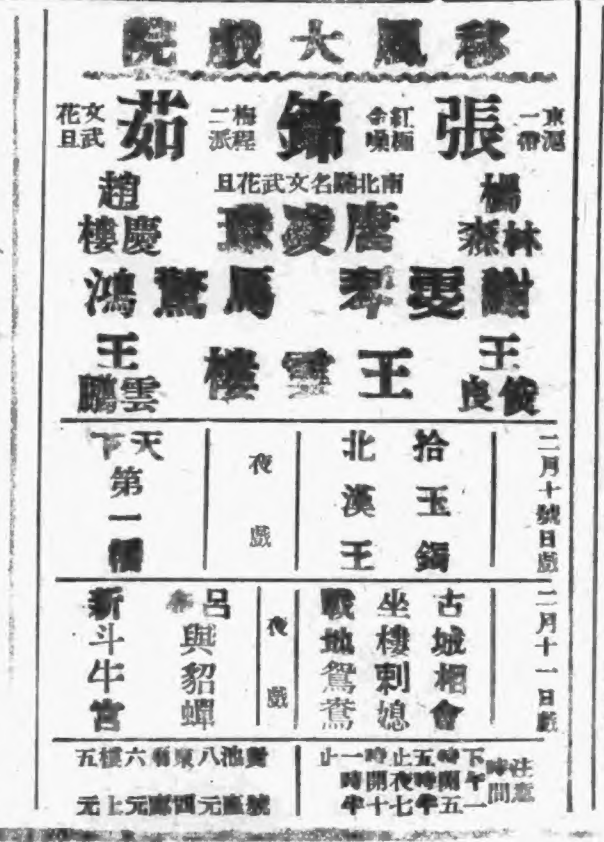 移風大戲院
東滬一帶
張
紅極金嗓
錦
梅程二派
茹
文武花旦
楊林森
南北馳名文武花旦
唐凌
趙慶樓
謝雯琴
馬驚鴻
王俊良
王雲樓
王雲鵬
二月十號日戲
拾玉鐲
北漢王
夜戲
天下第一橋
二月十一日戲
古城相會
坐樓刺媳
戰地鴛鴦
夜戲
呂布與貂蟬
新斗牛宮
注意時間
下午一
時開五
五時半
止夜七
時開十
一時半
止
對號
池座
八元
東西
廂廳
六元
樓上
五元